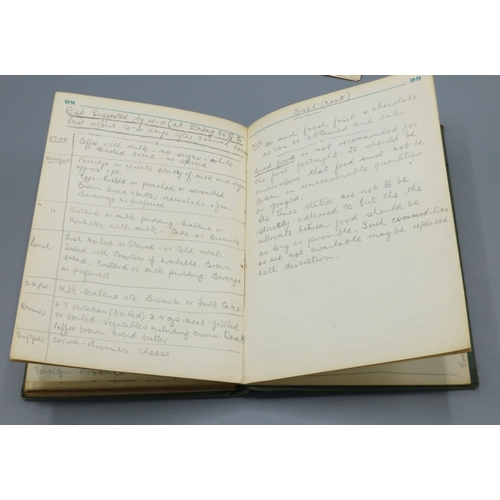 98
Diet Suggested by M.O. (at Stalag 357) to
last about 14-21 days after
Coffee with milk - no sugar - white
or toasted bread
Breakfast Porridge or cereals plenty of milk and sugar
Eggs - boiled or poached or scrambled
Brown bread + butter - Marmalade or Jam
Beverage as preferred
Custard or milk pudding - Ovaltine or
Horlicks with milk - Cake or Biscuits
Lunch Fish boiled or stewed - or cold meat.
Salad with tomatoes if available. Brown
bread. Custard or milk pudding. Beverage
as preferred
3-4 PM Milk - Ovaltine etc. Biscuits or fruit cake.
Dinner 2-3 potatoes (boiled) 2-4 ozs meat - grilled
or boiled. Vegetables including onions.
Coffee brown bread butter
Supper Cocoa - Biscuits Cheese
99
Diet (cont)
As much fresh fruit + chocolate
as can be obtained and eaten
food is not recommended for
the first fortnight. It should be
understood that food must not be
taken in unreasonable quantities
or gorged.
The Times stated are not to be
strictly adhered to but the
intervals between food should be
as long as possible. Such commodities
as are not available may be replaced
with discretion.
Foreign